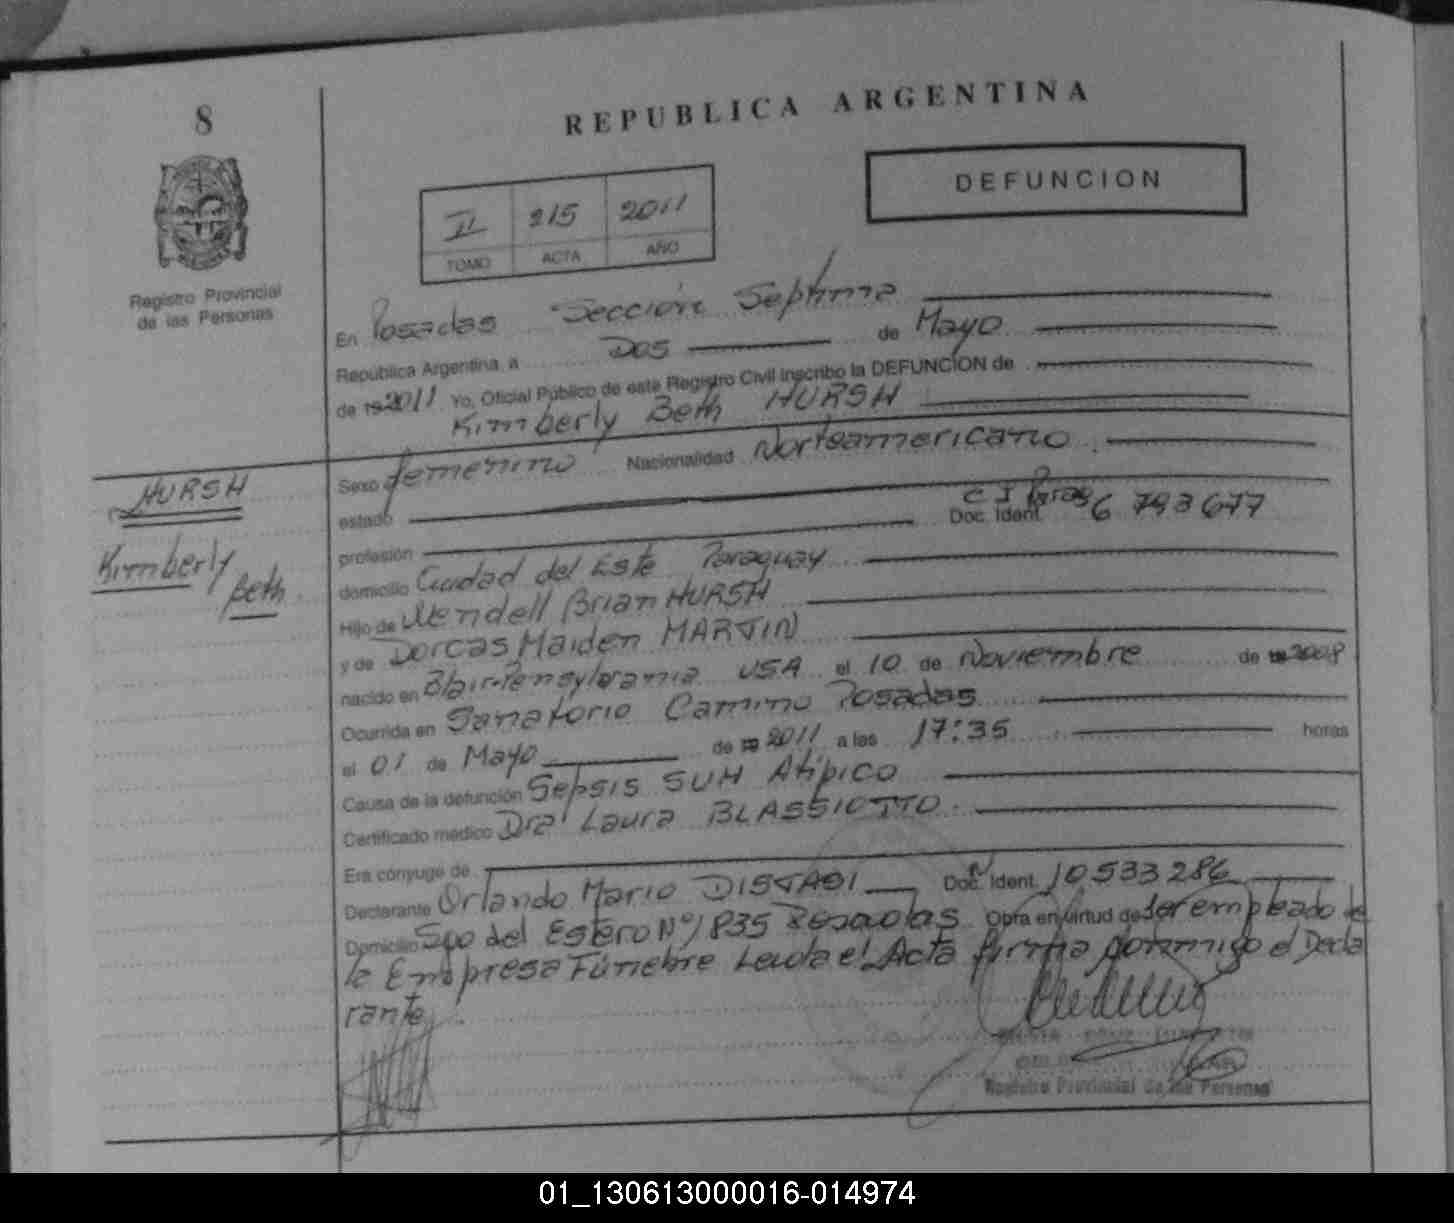 8
REPUBLICA ARGENTINA
DEFUNCION
II 215 2011
TOMO ACTA AÑO
Registro Provincial
de las Personas
En Posadas Sección Septima
República Argentina a Dos de Mayo
de 19 2011 Yo, Oficial Público de este Registro Civil inscribo la DEFUNCION de
Kimberly Beth HURSH
HURSH
Kimberly
Beth
Sexo femenino Nacionalidad Norteamericano
estado
profesión Doc. Ident. C I Parag 6 793 677
domicilio Ciudad del Este Paraguay
Hijo de Wendell Brian HURSH
y de Dorcas Maiden MARTIN
nacido en Blair-Pensylvania USA el 10 de Noviembre de 19 2008
Ocurrida en Sanatorio Camino Posadas
el 01 de Mayo de 19 2011 a las 17:35 horas
Causa de la defunción Sepsis SUH Atípico
Certificado médico Dra Laura BLASSIOTTO
Era cónyuge de
Declarante Orlando Mario Doc. Ident. 10533286
Domicilio Sgo del Estero Nº 1835 Posadas Obra en virtud de ser empleado de
la Empresa Fúnebre Leida el Acta firma conmigo el Decla
rante
Registro Provincial de las Personas
01_130613000016-014974